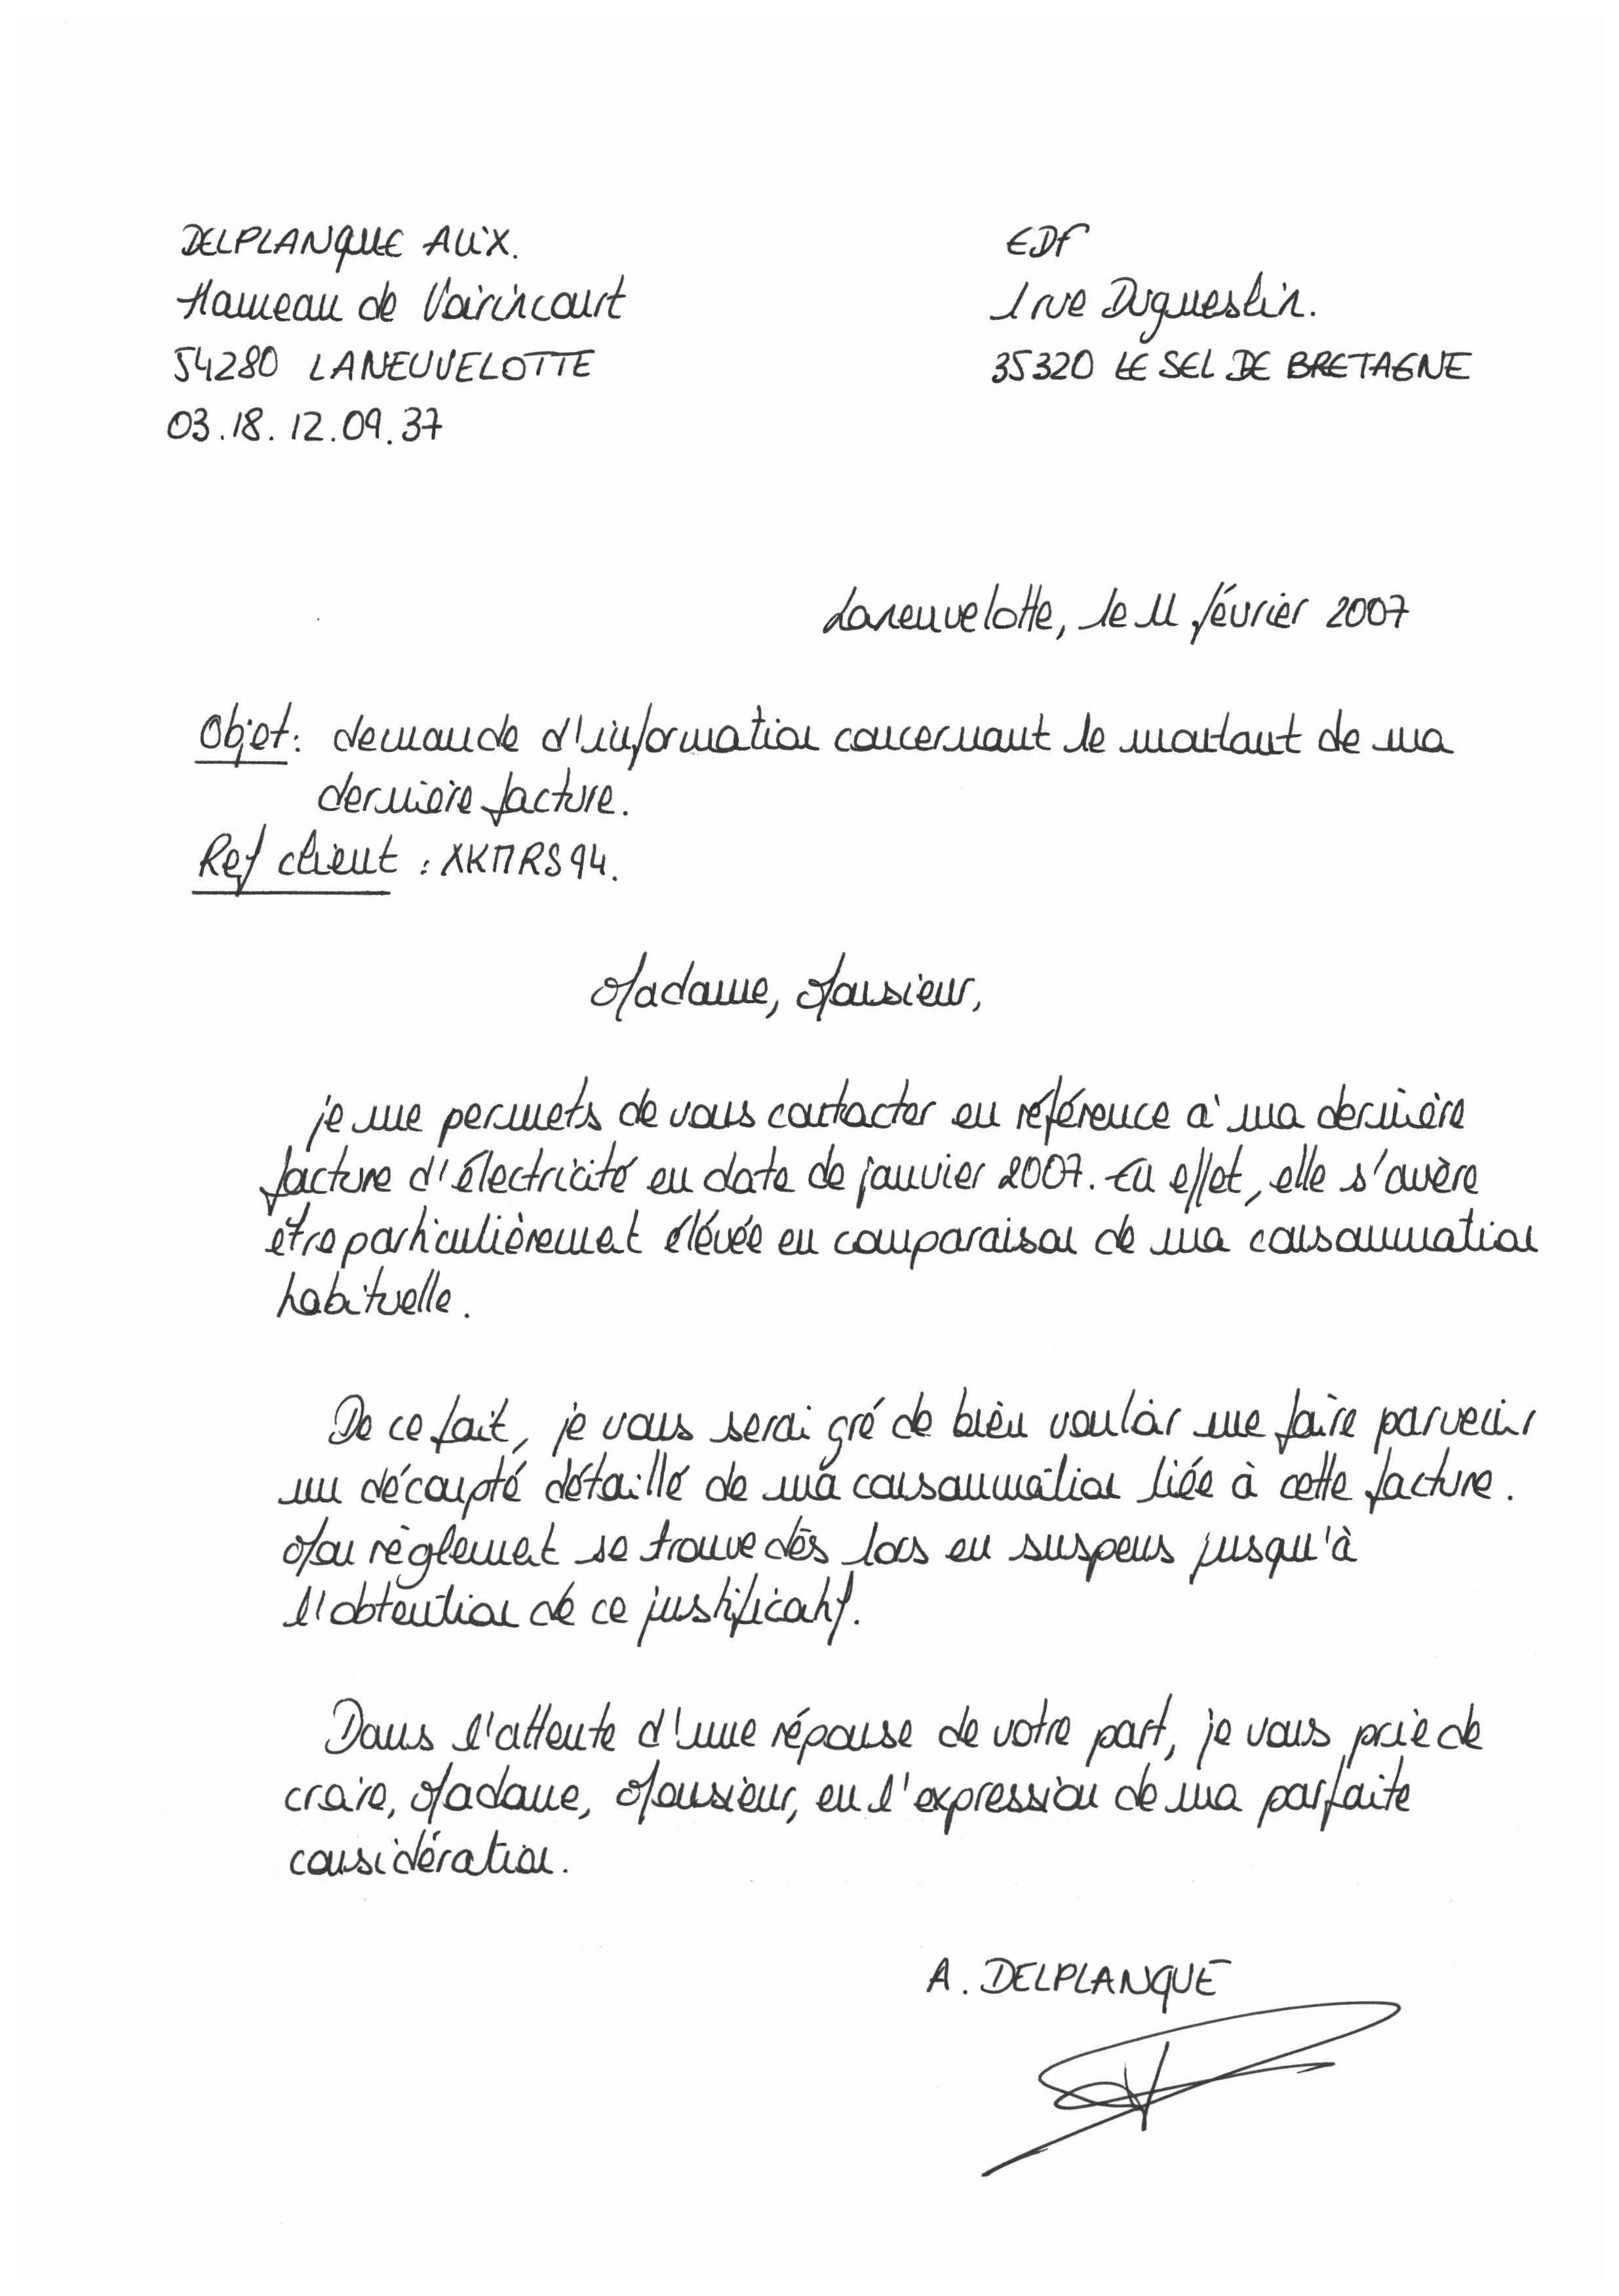 DELPLANQUE Alix.
Hameau de Voirincourt
54280 LANEUVELOTTE
03.18.12.09.37
EDF
1 rue Duguesclin.
35320 LE SEL DE BRETAGNE
Laneuvelotte, le 11 février 2007
Objet : demande d'information concernant le montant de ma
dernière facture.
Ref client : XKMRS94.
Madame, Monsieur,
je me permets de vous contacter en référence à ma dernière
facture d'électricité en date de janvier 2007. En effet, elle s'avère
être particulièrement élévée en comparaison de ma consommation
habituelle.
De ce fait, je vous serai gré de bien vouloir me faire parvenir
un décompté détaillé de ma consommation liée à cette facture.
Mon règlement se trouve dès lors en suspens jusqu'à
l'obtention de ce justificatif.
Dans l'attente d'une réponse de votre part, je vous prie de
croire, Madame, Monsieur, en l'expression de ma parfaite
considération.
A. DELPLANQUE